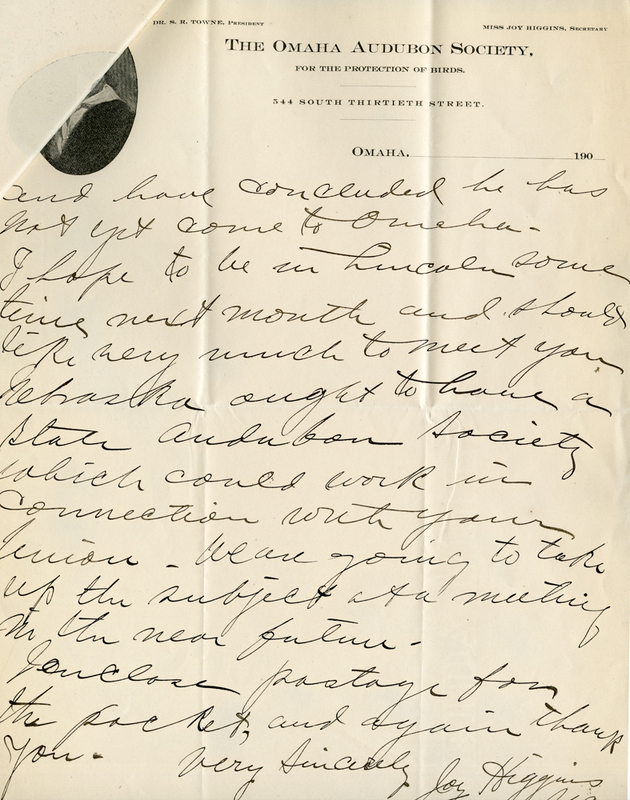 DR. S. R. TOWNE, PRESIDENT
MISS JOY HIGGINS, SECRETARY
THE OMAHA AUDUBON SOCIETY,
FOR THE PROTECTION OF BIRDS.
544 SOUTH THIRTIETH STREET.
OMAHA, 190
and have concluded he has
not yet come to Omaha -
I hope to be in Lincoln some
time next month and should
like very much to meet you
Nebraska ought to have a
State Audubon Society
which could work in
connection with your
Union - We are going to take
up the subject at a meeting
in the near future -
I enclose postage for
the packet, and again thank
you - Very Sincerely Joy Higgins